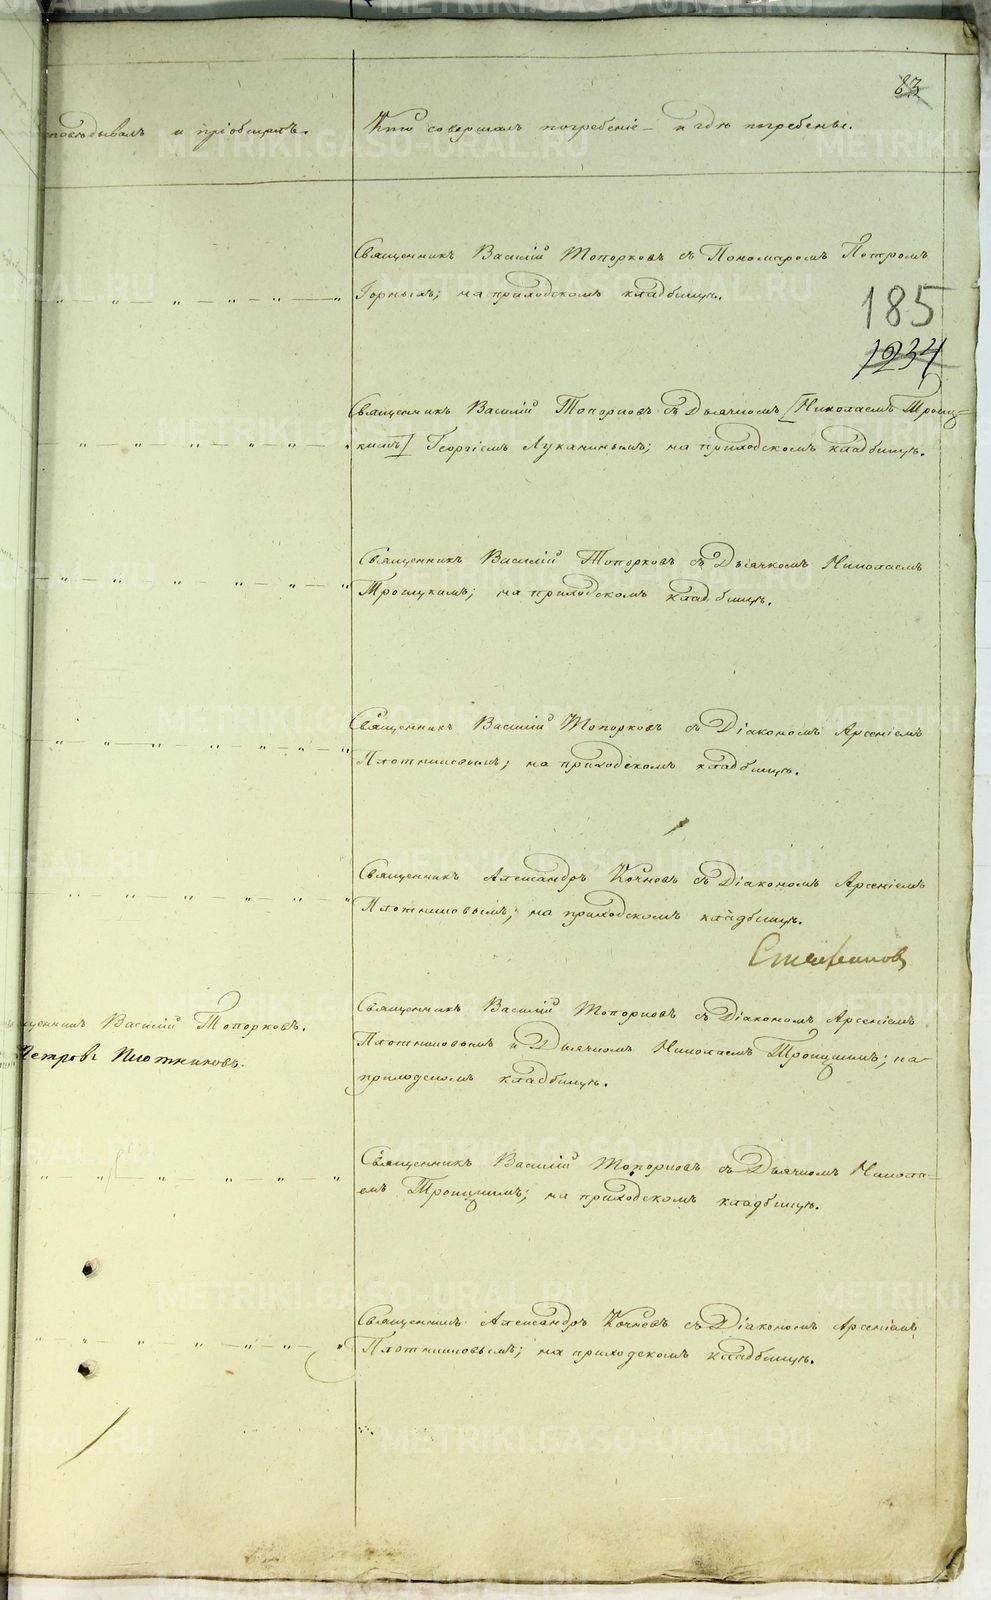 83
исповѣдывалъ и пріобщилъ.
Кто совершалъ погребеніе и гдѣ погребены.
Священникъ Василій Топорковъ съ Пономаремъ Петромъ
Горныхъ; на приходскомъ кладбищѣ.
185
1234
Священникъ Василій Топорковъ съ Дьячкомъ [Николаемъ Троиц-
кимъ] Георгіемъ Луканинымъ; на приходскомъ кладбищѣ.
Священникъ Василій Топорковъ съ Дьячкомъ Николаемъ
Троицкимъ; на приходскомъ кладбищѣ.
Священникъ Василій Топорковъ съ Діакономъ Арсеніемъ
Плотниковымъ; на приходскомъ кладбищѣ.
Священникъ Александръ Кочневъ съ Діакономъ Арсеніемъ
Плотниковымъ; на приходскомъ кладбищѣ.
Стефановъ
щенникъ Василій Топорковъ.
Петровъ Плотниковъ.
Священникъ Василій Топорковъ съ Діакономъ Арсеніемъ
Плотниковымъ и Дьячкомъ Николаемъ Троицкимъ; на
приходскомъ кладбищѣ.
Священникъ Василій Топорковъ съ Дьячкомъ Никола-
емъ Троицкимъ; на приходскомъ кладбищѣ.
Священникъ Александръ Кочневъ съ Діакономъ Арсеніемъ
Плотниковымъ; на приходскомъ кладбищѣ.
METRIKI.GASO-URAL.RU